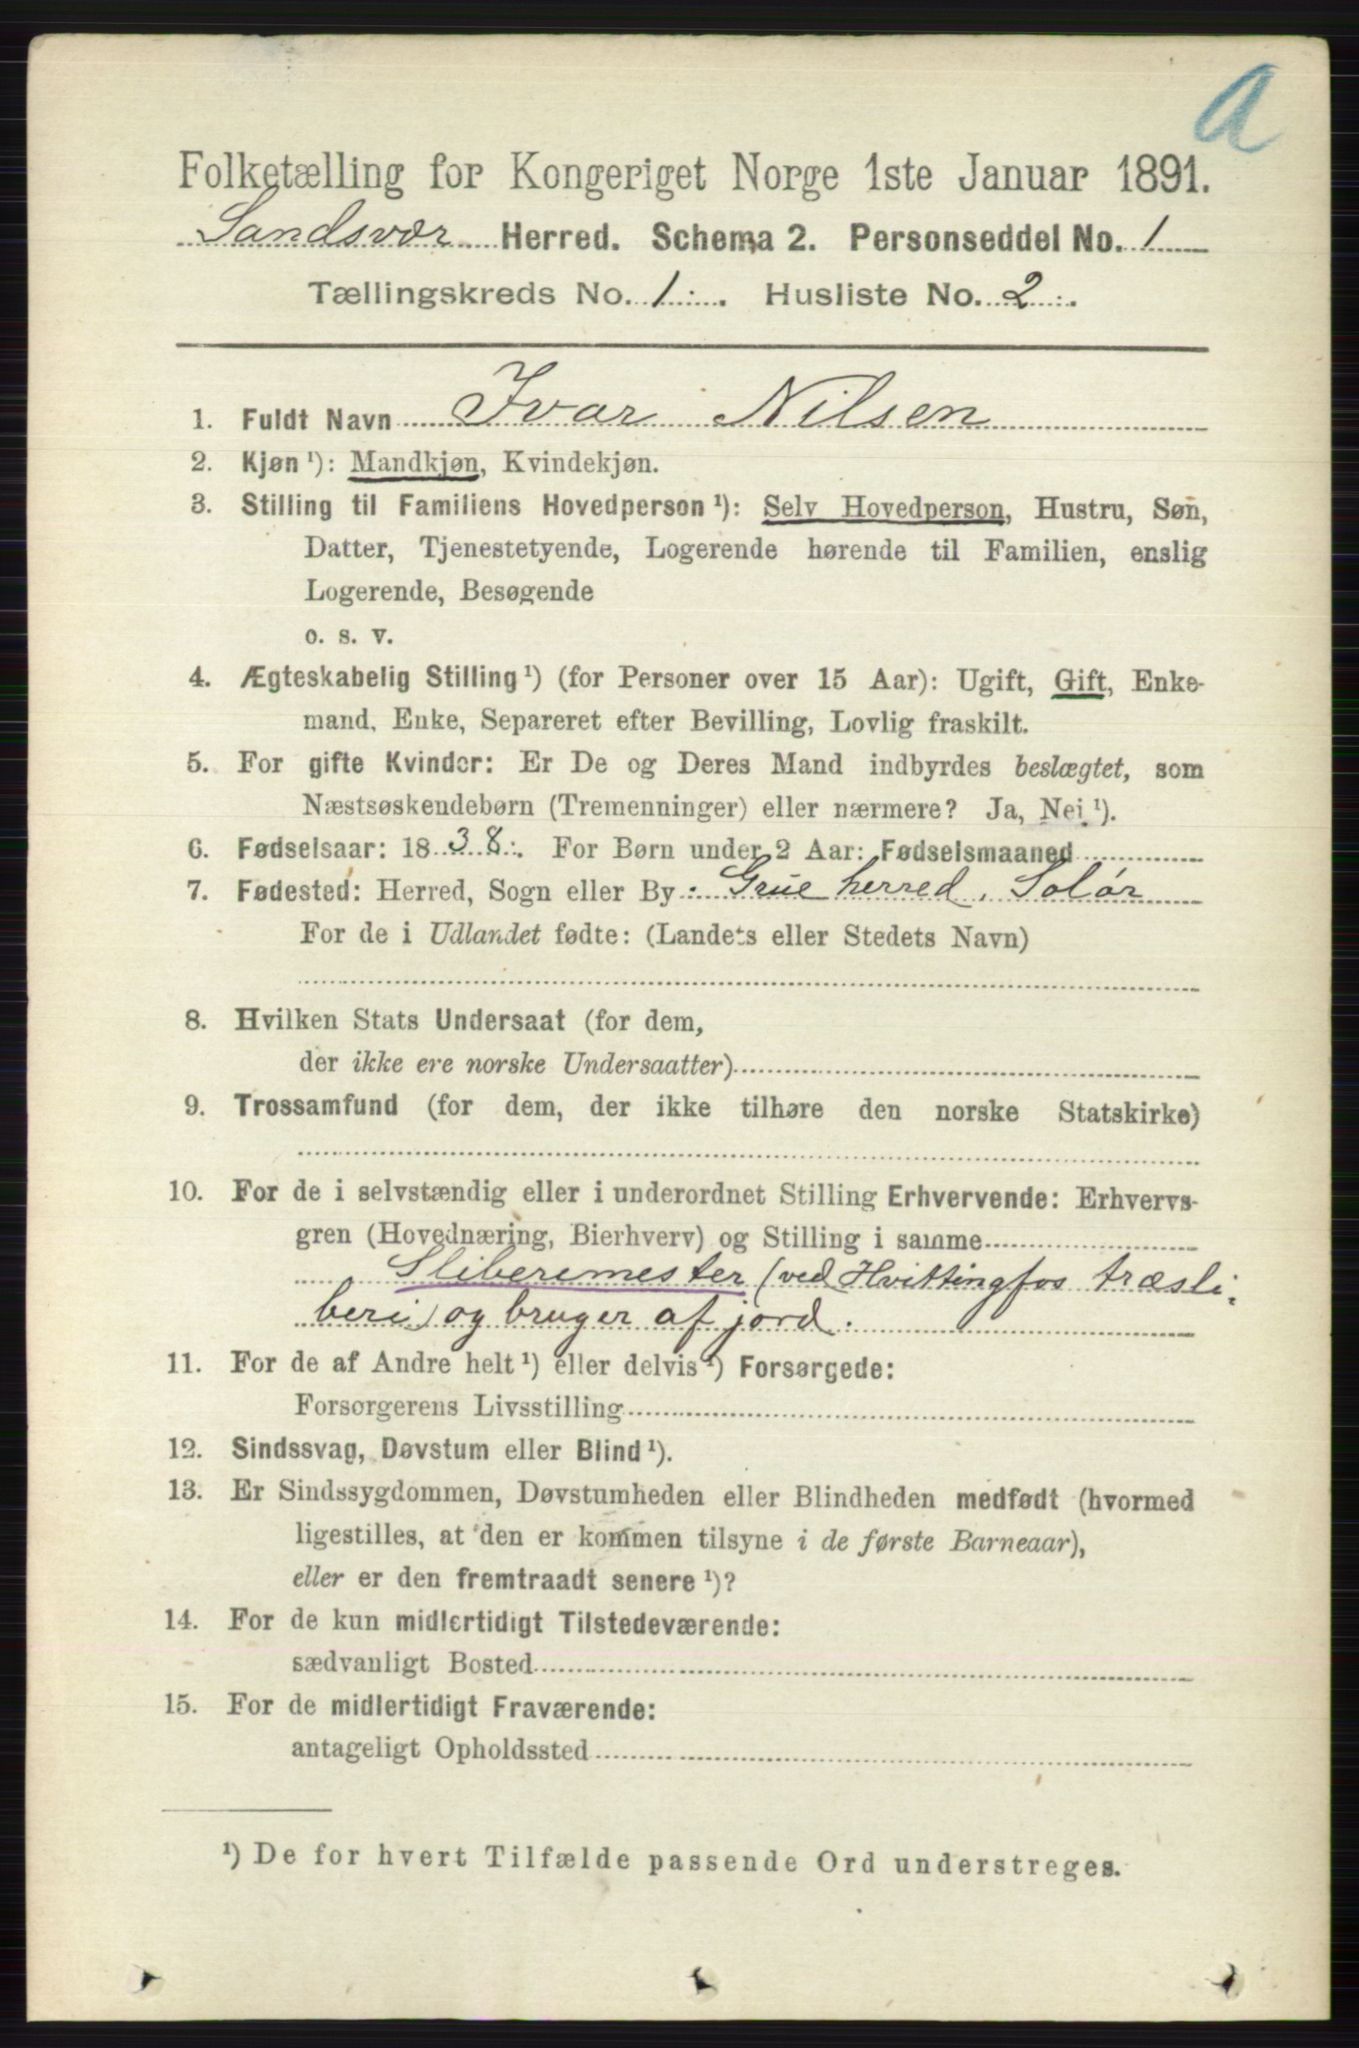 a
Folketælling for Kongeriget Norge 1ste Januar 1891.
Sandsvær Herred. Schema 2. Personseddel No. 1
Tællingskreds No. 1. Husliste No. 2.
1. Fuldt Navn Ivar Nilsen
2. Kjøn ¹): Mandkjøn, Kvindekjøn.
3. Stilling til Familiens Hovedperson ¹): Selv Hovedperson, Hustru, Søn,
Datter, Tjenestetyende, Logerende hørende til Familien, enslig
Logerende, Besøgende
o. s. v.
4. Ægteskabelig Stilling ¹) (for Personer over 15 Aar): Ugift, Gift, Enke-
mand, Enke, Separeret efter Bevilling, Lovlig fraskilt.
5. For gifte Kvinder: Er De og Deres Mand indbyrdes beslægtet, som
Næstsøskendebørn (Tremenninger) eller nærmere? Ja, Nei ¹).
6. Fødselsaar: 1838. For Børn under 2 Aar: Fødselsmaaned
7. Fødested: Herred, Sogn eller By: Grue herred, Solør
For de i Udlandet fødte: (Landets eller Stedets Navn)
8. Hvilken Stats Undersaat (for dem,
der ikke ere norske Undersaatter)
9. Trossamfund (for dem, der ikke tilhøre den norske Statskirke)
10. For de i selvstændig eller i underordnet Stilling Erhvervende: Erhvervs-
gren (Hovednæring, Bierhverv) og Stilling i samme
Sliberimester (ved Hvittingfos træsli-
beri) og bruger af jord.
11. For de af Andre helt ¹) eller delvis ¹) Forsørgede:
Forsørgerens Livsstilling
12. Sindssvag, Døvstum eller Blind ¹).
13. Er Sindssygdommen, Døvstumheden eller Blindheden medfødt (hvormed
ligestilles, at den er kommen tilsyne i de første Barneaar),
eller er den fremtraadt senere ¹)?
14. For de kun midlertidigt Tilstedeværende:
sædvanligt Bosted
15. For de midlertidigt Fraværende:
antageligt Opholdssted
¹) De for hvert Tilfælde passende Ord understreges.